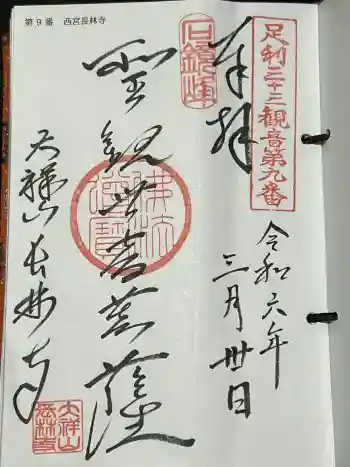 第9番 西宮長林寺
足利三十三観音第九番
奉拝
令和六年
三月卅日
石鏡峰
聖観世音菩薩
佛法僧寶
大祥山長林寺
大祥山
長林寺